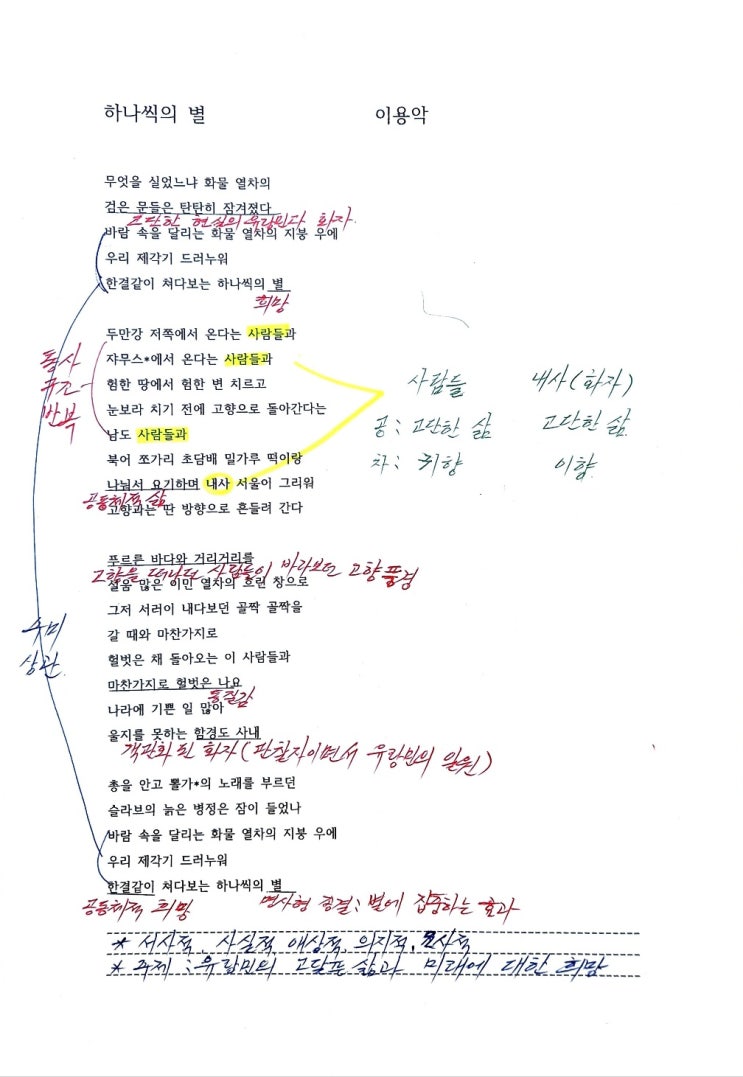 하나씩의 별 이용악
무엇을 실었느냐 화물 열차의
검은 문들은 탄탄히 잠겨졌다
고단한 현실의 유랑민과 화자
바람 속을 달리는 화물 열차의 지붕 우에
우리 제각기 드러누워
한결같이 쳐다보는 하나씩의 별
희망
두만강 저쪽에서 온다는 사람들과
쟈무스*에서 온다는 사람들과
통사
구간
반복
험한 땅에서 험한 변 치르고
눈보라 치기 전에 고향으로 돌아간다는
남도 사람들과
사람들 내사(화자)
공: 고단한 삶 고단한 삶
차: 귀향 이향
북어 쪼가리 초담배 밀가루 떡이랑
나눠서 요기하며 내사 서울이 그리워
공동체적 삶
고향과는 딴 방향으로 흔들려 간다
푸르른 바다와 거리거리를
고향을 떠나던 사람들이 바라보던 고향 풍경
설움 많은 이민 열차의 흐린 창으로
그저 서러이 내다보던 골짝 골짝을
갈 때와 마찬가지로
수미
상관
헐벗은 채 돌아오는 이 사람들과
마찬가지로 헐벗은 나요
동질감
나라에 기쁜 일 많아
울지를 못하는 함경도 사내
객관화 된 화자(관찰자이면서 유랑민의 일원)
총을 안고 뽈가*의 노래를 부르던
슬라브의 늙은 병정은 잠이 들었나
바람 속을 달리는 화물 열차의 지붕 우에
우리 제각기 드러누워
한결같이 쳐다보는 하나씩의 별
공동체적 희망 명사형 종결: 별에 집중하는 효과
* 서사적, 사실적, 애상적, 의지적, 묘사적
* 주제 : 유랑민의 고달픈 삶과 미래에 대한 희망